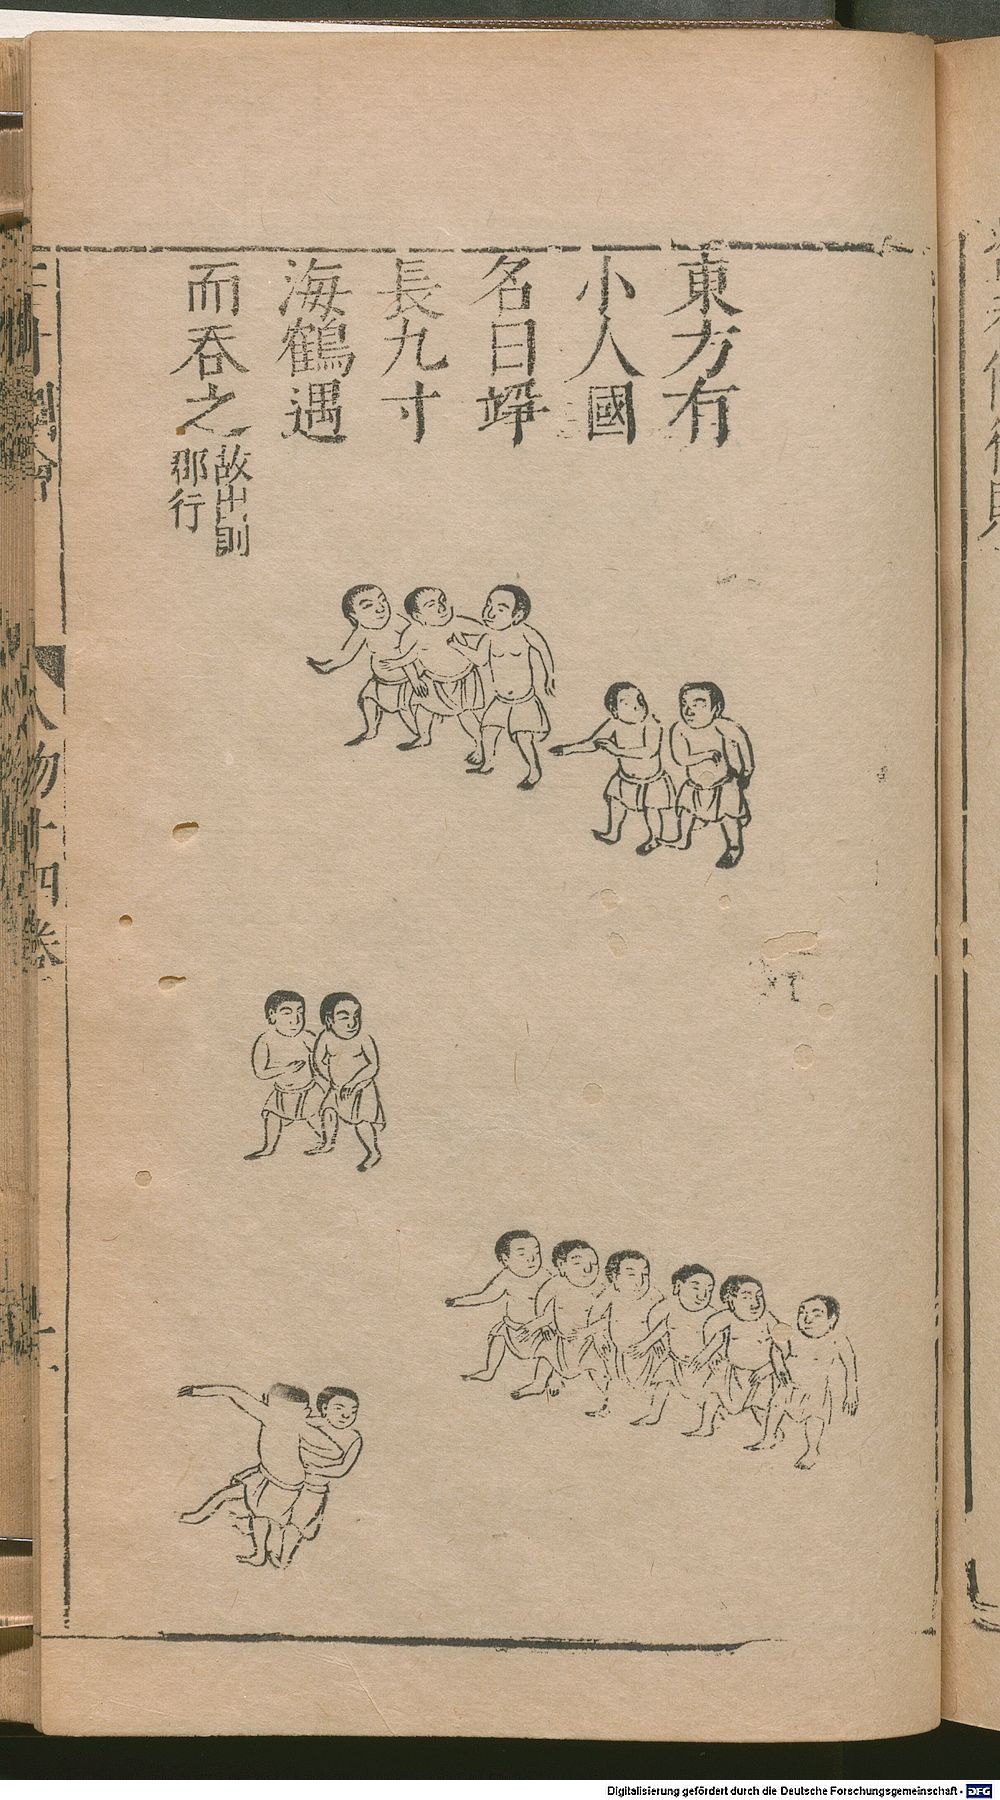 東方有
小人國
名曰竫
長九寸
海鶴遇
而吞之
故出則
郡行
人物十四卷
Digitalisierung gefördert durch die Deutsche Forschungsgemeinschaft - DFG